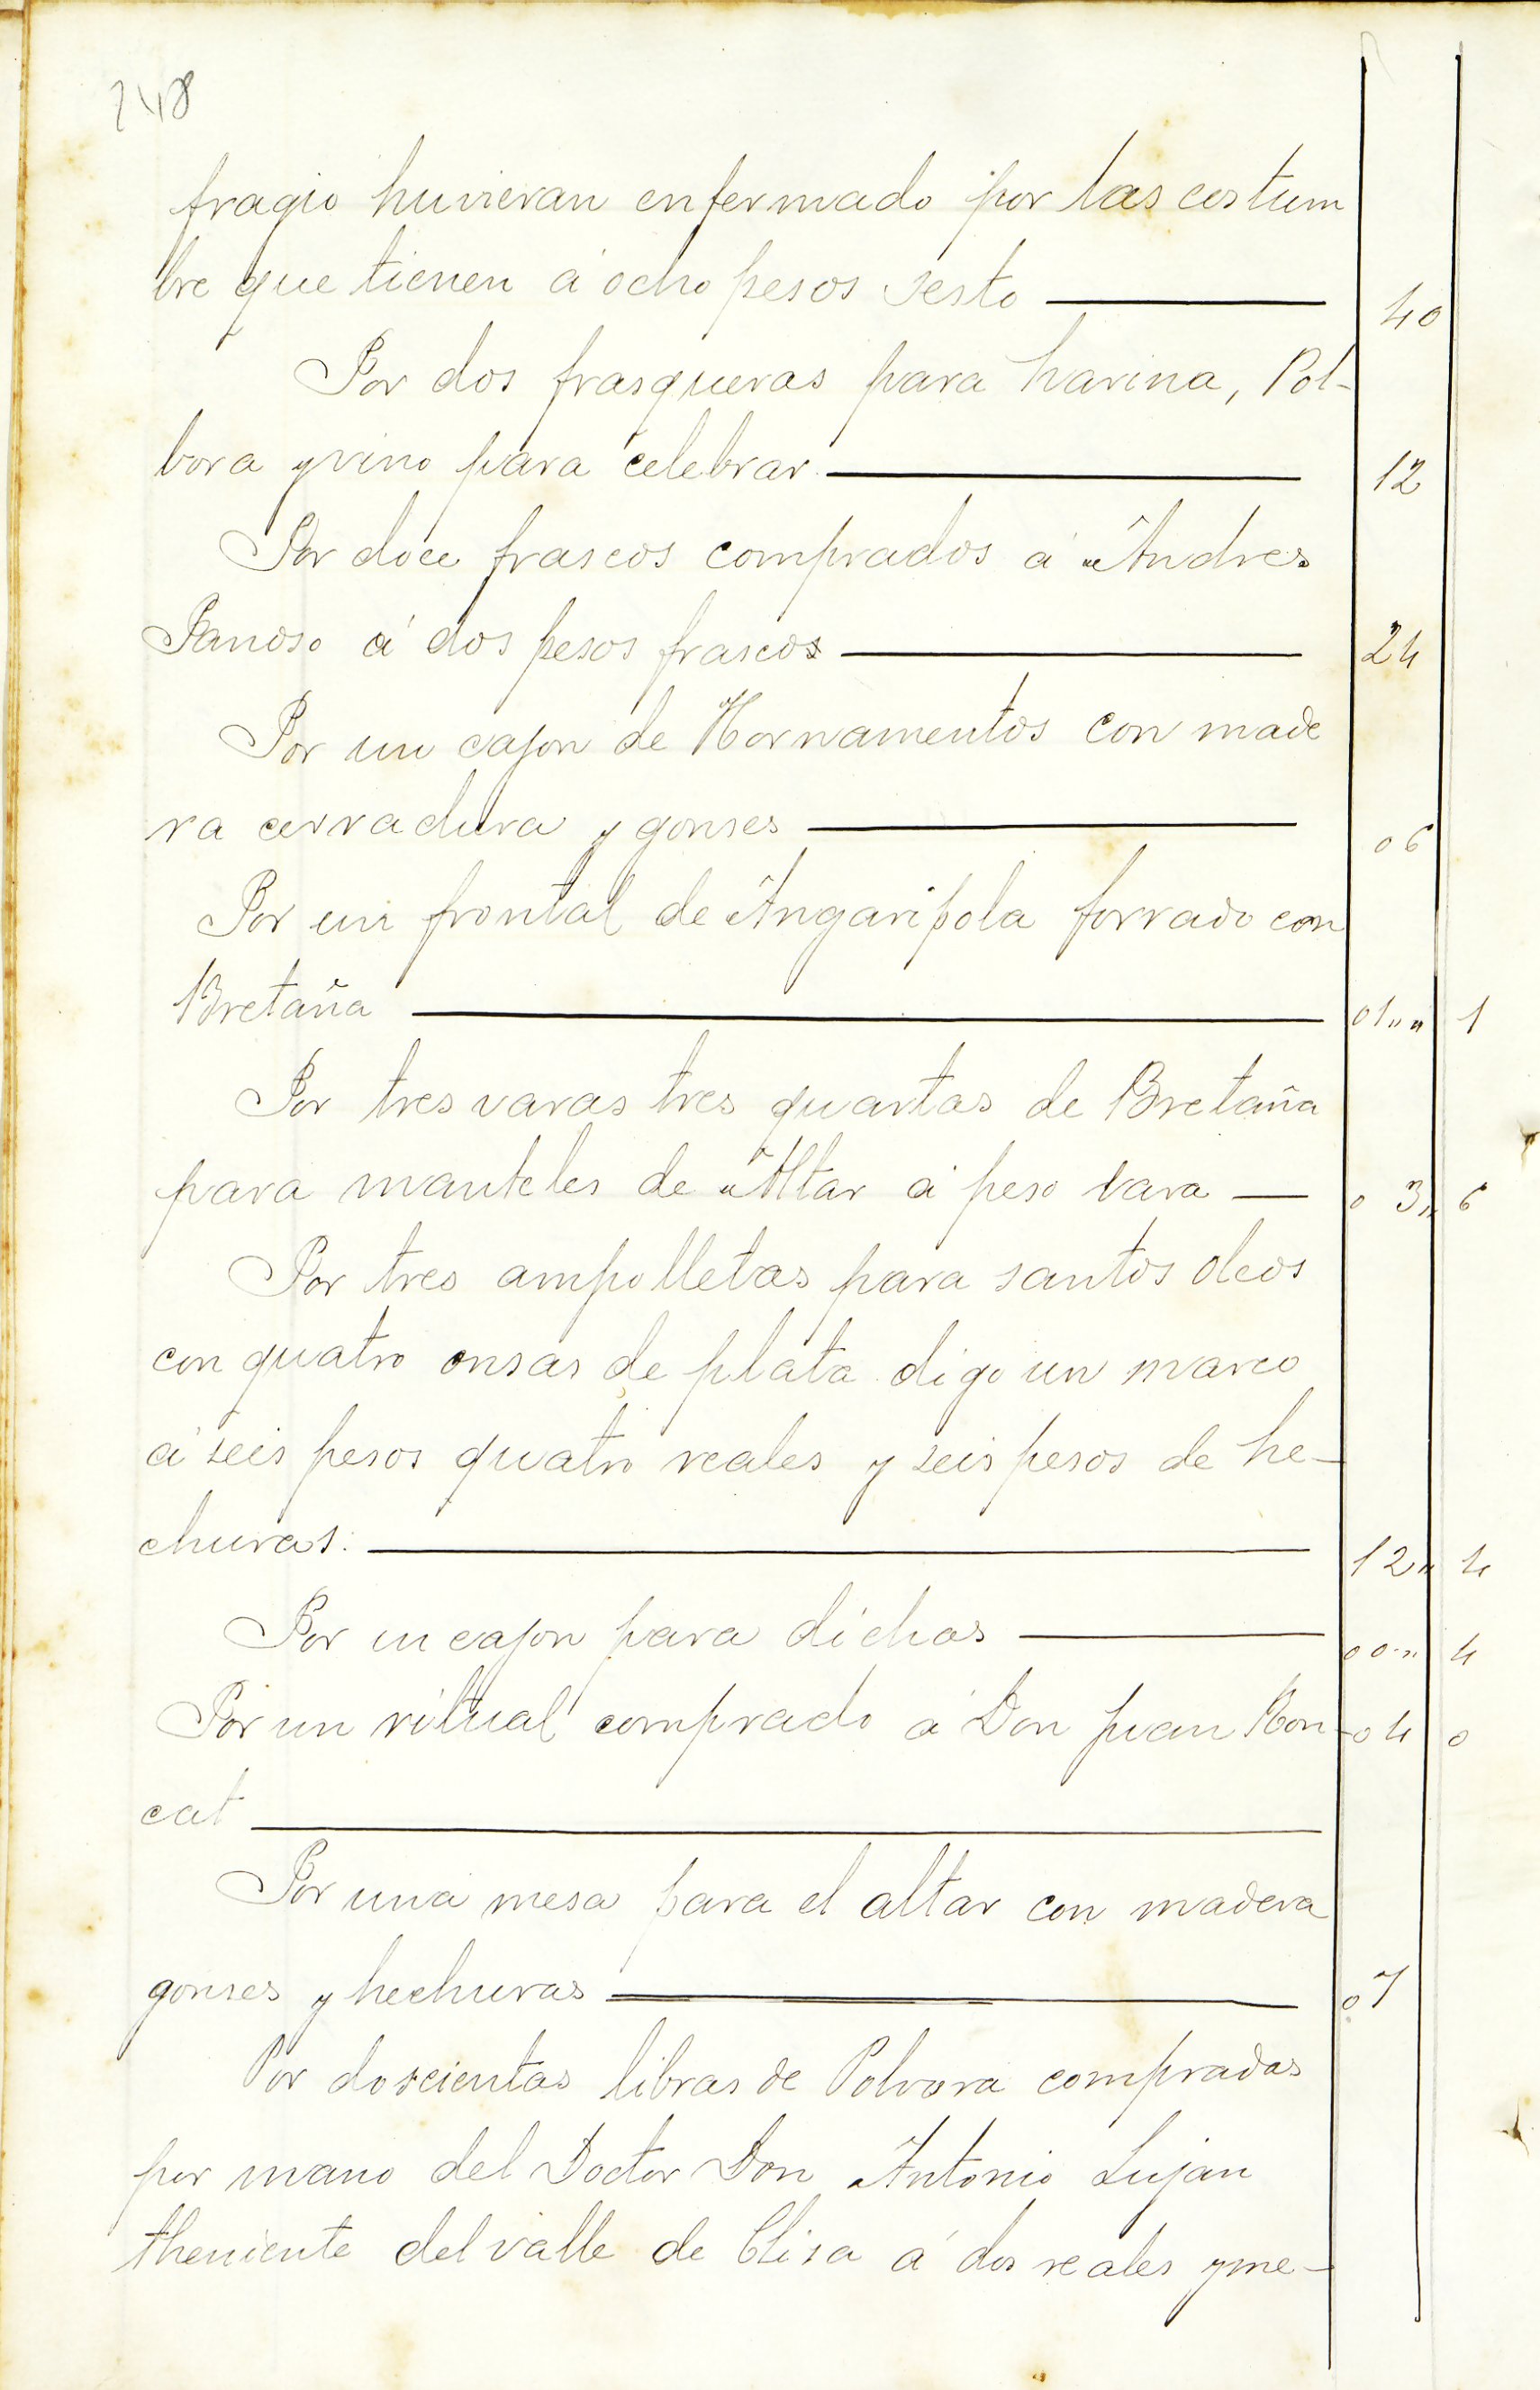 248
fragio huvieran enfermado por las costum
bre que tienen á ocho pesos sesto 40
Por dos frasqueras para harina, Pol-
bora y vino para celebrar 12
Por doce frascos comprados á Andres
Panoso á dos pesos frascos 24
Por un cajon de Hornamentos con made
ra cerradura y gonses 06
Por un frontal de Angaripola forrado con
Bretaña 01,, ,, 1
Por tres varas tres quartas de Bretaña
para manteles de Altar á peso vara 03,, 6
Por tres ampolletas para santos oleos
con quatro onsas de plata digo un marco
á seis pesos quatro reales y seis pesos de he-
churas: 12,, 4
Por un cajon para dichas 00,, 4
Por un ritual comprado á Don Juan Mon- 04 0
cat
Por una mesa para el altar con madera
gonses y hechuras 07
Por doscientas libras de Polvora compradas
por mano del Doctor Don Antonio Lujan
theniente del valle de Clisa á dos reales y me-